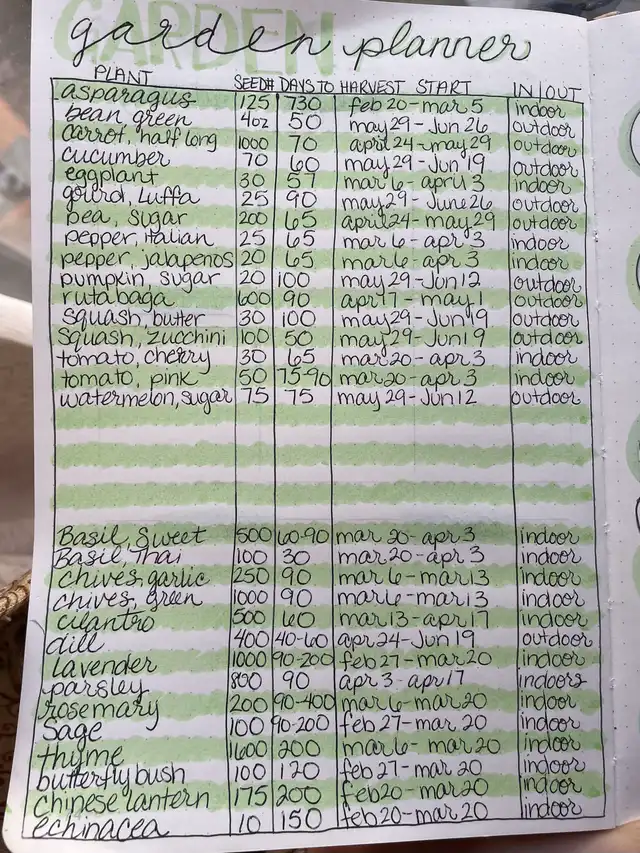 GARDEN
garden planner
PLANT SEED# DAYS TO HARVEST START IN/OUT
asparagus 125 730 feb 20-mar 5 indoor
bean green 4oz 50 may 29-Jun 26 outdoor
carrot, half long 1000 70 april 24-may 29 outdoor
cucumber 70 60 may 29-Jun 19 outdoor
eggplant 30 57 mar 6-april 3 indoor
gourd, Luffa 25 90 may 29-June 26 outdoor
pea, sugar 200 65 april 24-may 29 outdoor
pepper, Italian 25 65 mar 6-apr 3 indoor
pepper, jalapenos 20 65 mar 6-apr 3 indoor
pumpkin, sugar 20 100 may 29-Jun 12 outdoor
rutabaga 600 90 apr 17-may 1 outdoor
squash, butter 30 100 may 29-Jun 19 outdoor
Squash, zucchini 100 50 may 29-Jun 19 outdoor
tomato, cherry 30 65 mar 20-apr 3 indoor
tomato, pink 50 75-90 mar 20-apr 3 indoor
watermelon, sugar 75 75 may 29-Jun 12 outdoor
Basil, Sweet 500 60-90 mar 20-apr 3 indoor
Basil, Thai 100 30 mar 20-apr 3 indoor
chives, garlic 250 90 mar 6-mar 13 indoor
chives, green 1000 90 mar 6-mar 13 indoor
cilantro 500 60 mar 13-apr 17 indoor
dill 400 40-60 apr 24-Jun 19 outdoor
lavender 1000 90-200 feb 27-mar 20 indoor
parsley 800 90 apr 3-apr 17 indoors
rosemary 200 90-400 mar 6-mar 20 indoor
Sage 100 90-200 feb 27-mar 20 indoor
thyme 1600 200 mar 6-mar 20 indoor
butterfly bush 100 120 feb 27-mar 20 indoor
chinese lantern 175 200 feb 20-mar 20 indoor
echinacea 10 150 feb 20-mar 20 indoor